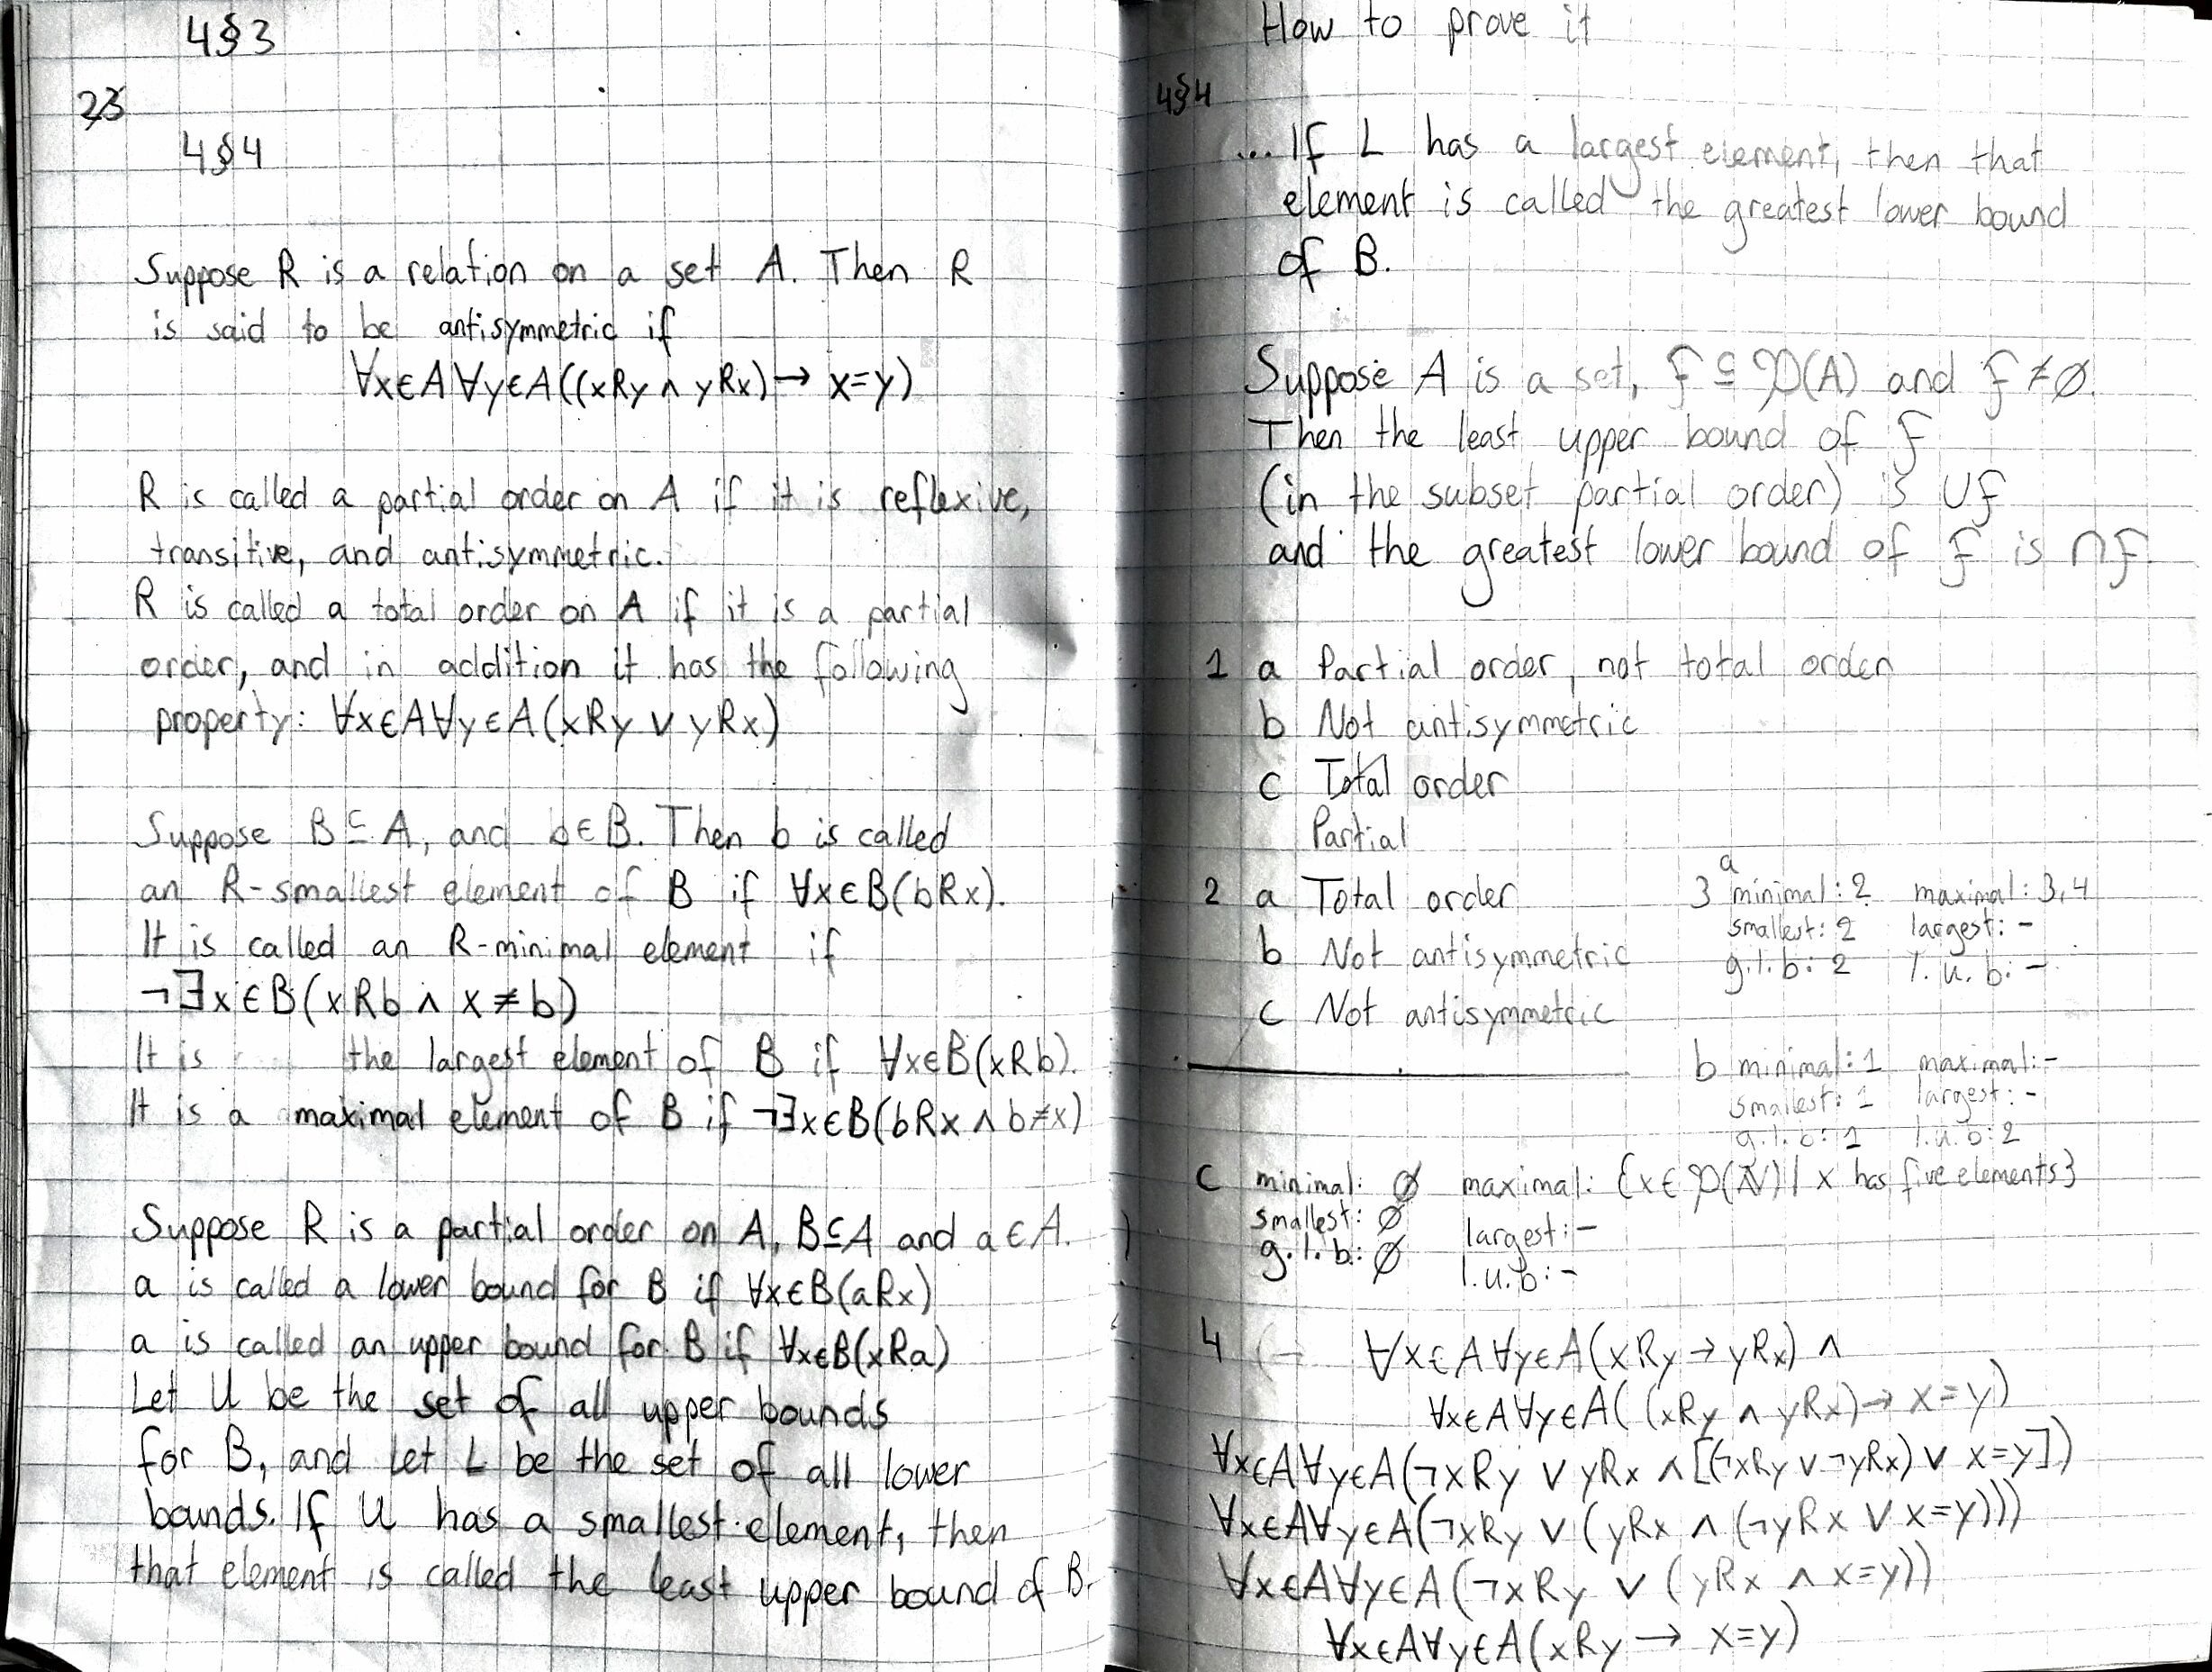 4§3
23
4§4
Suppose R is a relation on a set A. Then R
is said to be antisymmetric if
∀x∈A∀y∈A((xRy ∧ yRx)→ x=y)
R is called a partial order on A if it is reflexive,
transitive, and antisymmetric.
R is called a total order on A if it is a partial
order, and in addition it has the following
property: ∀x∈A∀y∈A(xRy ∨ yRx)
Suppose B⊆A, and b∈B. Then b is called
an R-smallest element of B if ∀x∈B(bRx).
It is called an R-minimal element if
¬∃x∈B(xRb ∧ x≠b)
It is the largest element of B if ∀x∈B(xRb).
It is a maximal element of B if ¬∃x∈B(bRx ∧ b≠x)
Suppose R is a partial order on A, B⊆A and a∈A.
a is called a lower bound for B if ∀x∈B(aRx)
a is called an upper bound for B if ∀x∈B(xRa)
Let U be the set of all upper bounds
for B, and let L be the set of all lower
bounds. If U has a smallest element, then
that element is called the least upper bound of B.
How to prove it
4§4
... If L has a largest element, then that
element is called the greatest lower bound
of B.
Suppose A is a set, F ⊆ ℘(A) and F ≠ ∅.
Then the least upper bound of F
(in the subset partial order) is ∪F
and the greatest lower bound of F is ∩F.
1 a Partial order, not total order
b Not antisymmetric
c Total order
Partial
2 a Total order
b Not antisymmetric
c Not antisymmetric
a
3 minimal: 2 maximal: 3,4
smallest: 2 largest: -
g.l.b: 2 l.u.b: -
b minimal: 1 maximal: -
smallest: 1 largest: -
g.l.b: 1 l.u.b: 2
c minimal: ∅ maximal: {x∈℘(ℕ) | x has five elements}
smallest: ∅ largest: -
g.l.b: ∅ l.u.b: -
4 (→ ∀x∈A∀y∈A(xRy → yRx) ∧
∀x∈A∀y∈A((xRy ∧ yRx)→ x=y)
∀x∈A∀y∈A(¬xRy ∨ yRx ∧ [(¬xRy ∨ ¬yRx) ∨ x=y])
∀x∈A∀y∈A(¬xRy ∨ (yRx ∧ (¬yRx ∨ x=y)))
∀x∈A∀y∈A(¬xRy ∨ (yRx ∧ x=y))
∀x∈A∀y∈A(xRy → x=y)